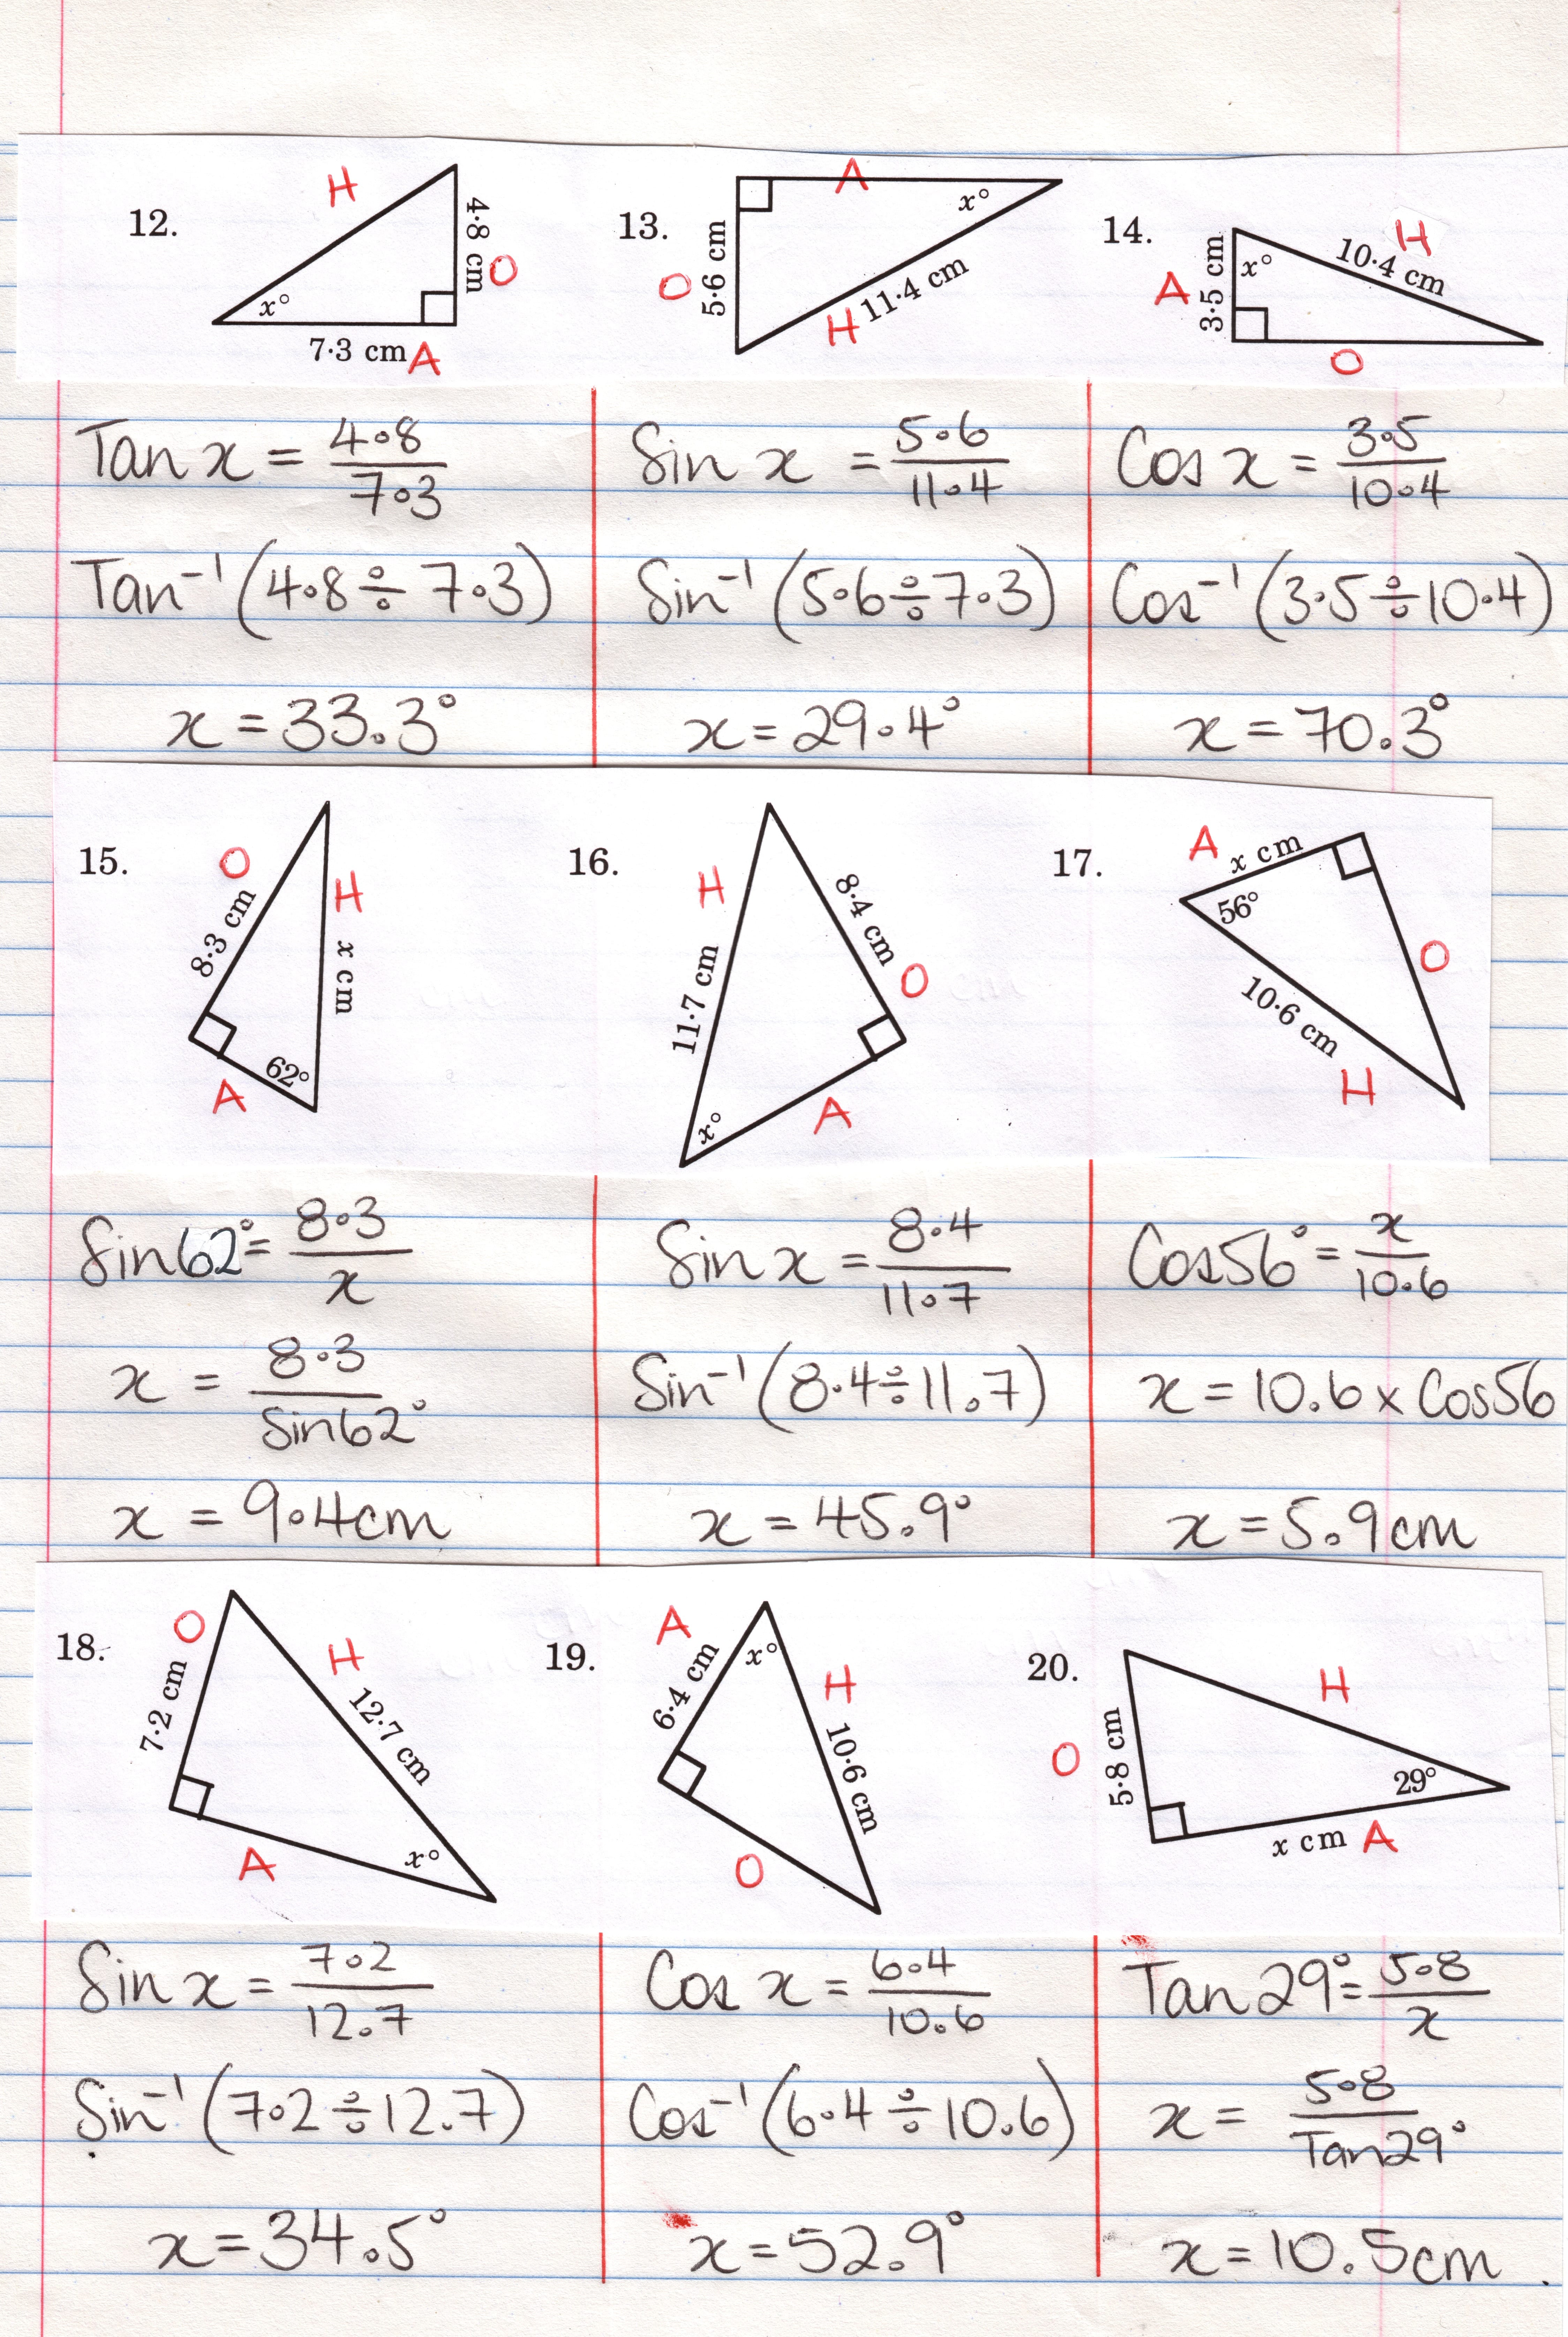 12. H 4·8 cm O x° 7·3 cm A
13. A x° O 5·6 cm H 11·4 cm
14. H 10·4 cm A 3·5 cm x° O
Tan x = 4.8/7.3
Tan⁻¹(4.8÷7.3)
x = 33.3°
Sin x = 5.6/11.4
Sin⁻¹(5.6÷7.3)
x = 29.4°
Cos x = 3.5/10.4
Cos⁻¹(3.5÷10.4)
x = 70.3°
15. O 8·3 cm H x cm A 62°
16. H 11·7 cm 8·4 cm O x° A
17. A x cm 56° O 10·6 cm H
Sin62° = 8.3/x
x = 8.3/Sin62°
x = 9.4cm
Sin x = 8.4/11.7
Sin⁻¹(8.4÷11.7)
x = 45.9°
Cos56° = x/10.6
x = 10.6 x Cos56
x = 5.9cm
18. O 7·2 cm H 12·7 cm A x°
19. A 6·4 cm x° H 10·6 cm O
20. H O 5·8 cm 29° x cm A
Sin x = 7.2/12.7
Sin⁻¹(7.2÷12.7)
x = 34.5°
Cos x = 6.4/10.6
Cos⁻¹(6.4÷10.6)
x = 52.9°
Tan29° = 5.8/x
x = 5.8/Tan29°
x = 10.5cm.